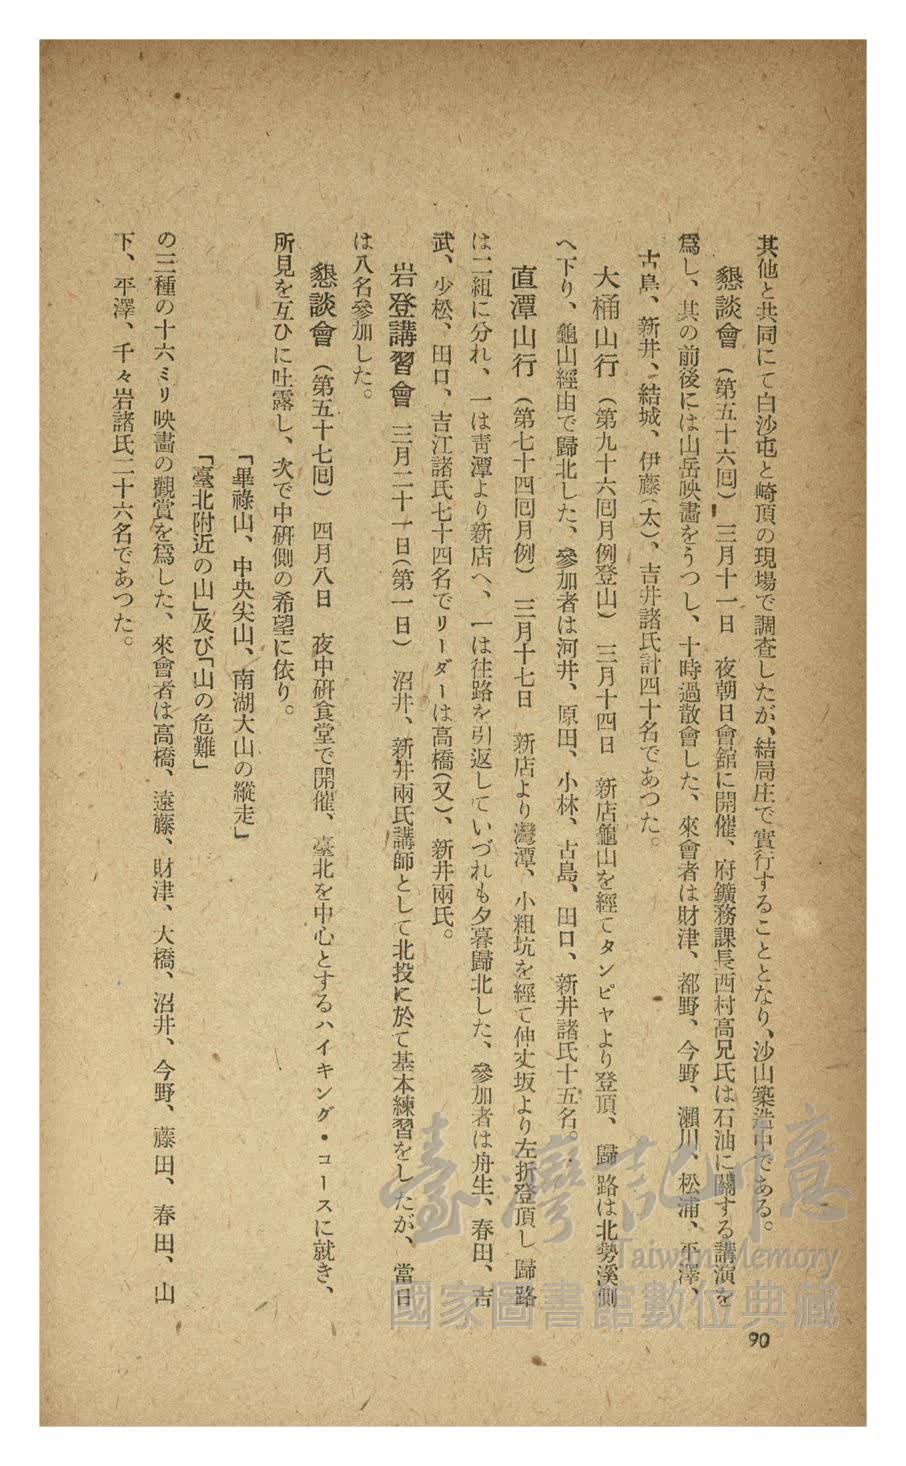 其他と共同にて白沙屯と崎頂の現場で調査したが、結局庄で實行することとなり、沙山築造中である。
懇談會（第五十六囘）三月十一日　夜朝日會舘に開催、府鑛務課長西村高兄氏は石油に關する講演を
爲し、其の前後には山岳映畫をうつし、十時過散會した、來會者は財津、都野、今野、瀨川、松浦、平澤、
古島、新井、結城、伊藤（太）、吉井諸氏計四十名であつた。
大桶山行（第九十六囘月例登山）三月十四日　新店龜山を經てタンピヤより登頂、歸路は北勢溪側
へ下り、龜山經由で歸北した、參加者は河井、原田、小林、古島、田口、新井諸氏十五名。
直潭山行（第七十四囘月例）三月十七日　新店より灣潭、小粗坑を經て伸丈坂より左折登頂し歸路
は二組に分れ、一は靑潭より新店へ、一は往路を引返していづれも夕暮歸北した、參加者は舟生、春田、吉
武、少松、田口、吉江諸氏七十四名でリーダーは高橋（又）、新井兩氏。
岩登講習會　三月二十一日（第一日）沼井、新井兩氏講師として北投に於て基本練習をしたが、當日
は八名參加した。
懇談會（第五十七囘）四月八日　夜中硏食堂で開催、臺北を中心とするハイキング・コースに就き、
所見を互ひに吐露し、次で中硏側の希望に依り。
「畢祿山、中央尖山、南湖大山の縱走」
「臺北附近の山」及び「山の危難」
の三種の十六ミリ映畫の觀賞を爲した、來會者は高橋、遠藤、財津、大橋、沼井、今野、藤田、春田、山
下、平澤、千々岩諸氏二十六名であつた。
90
臺灣記憶
Taiwan Memory
國家圖書館數位典藏